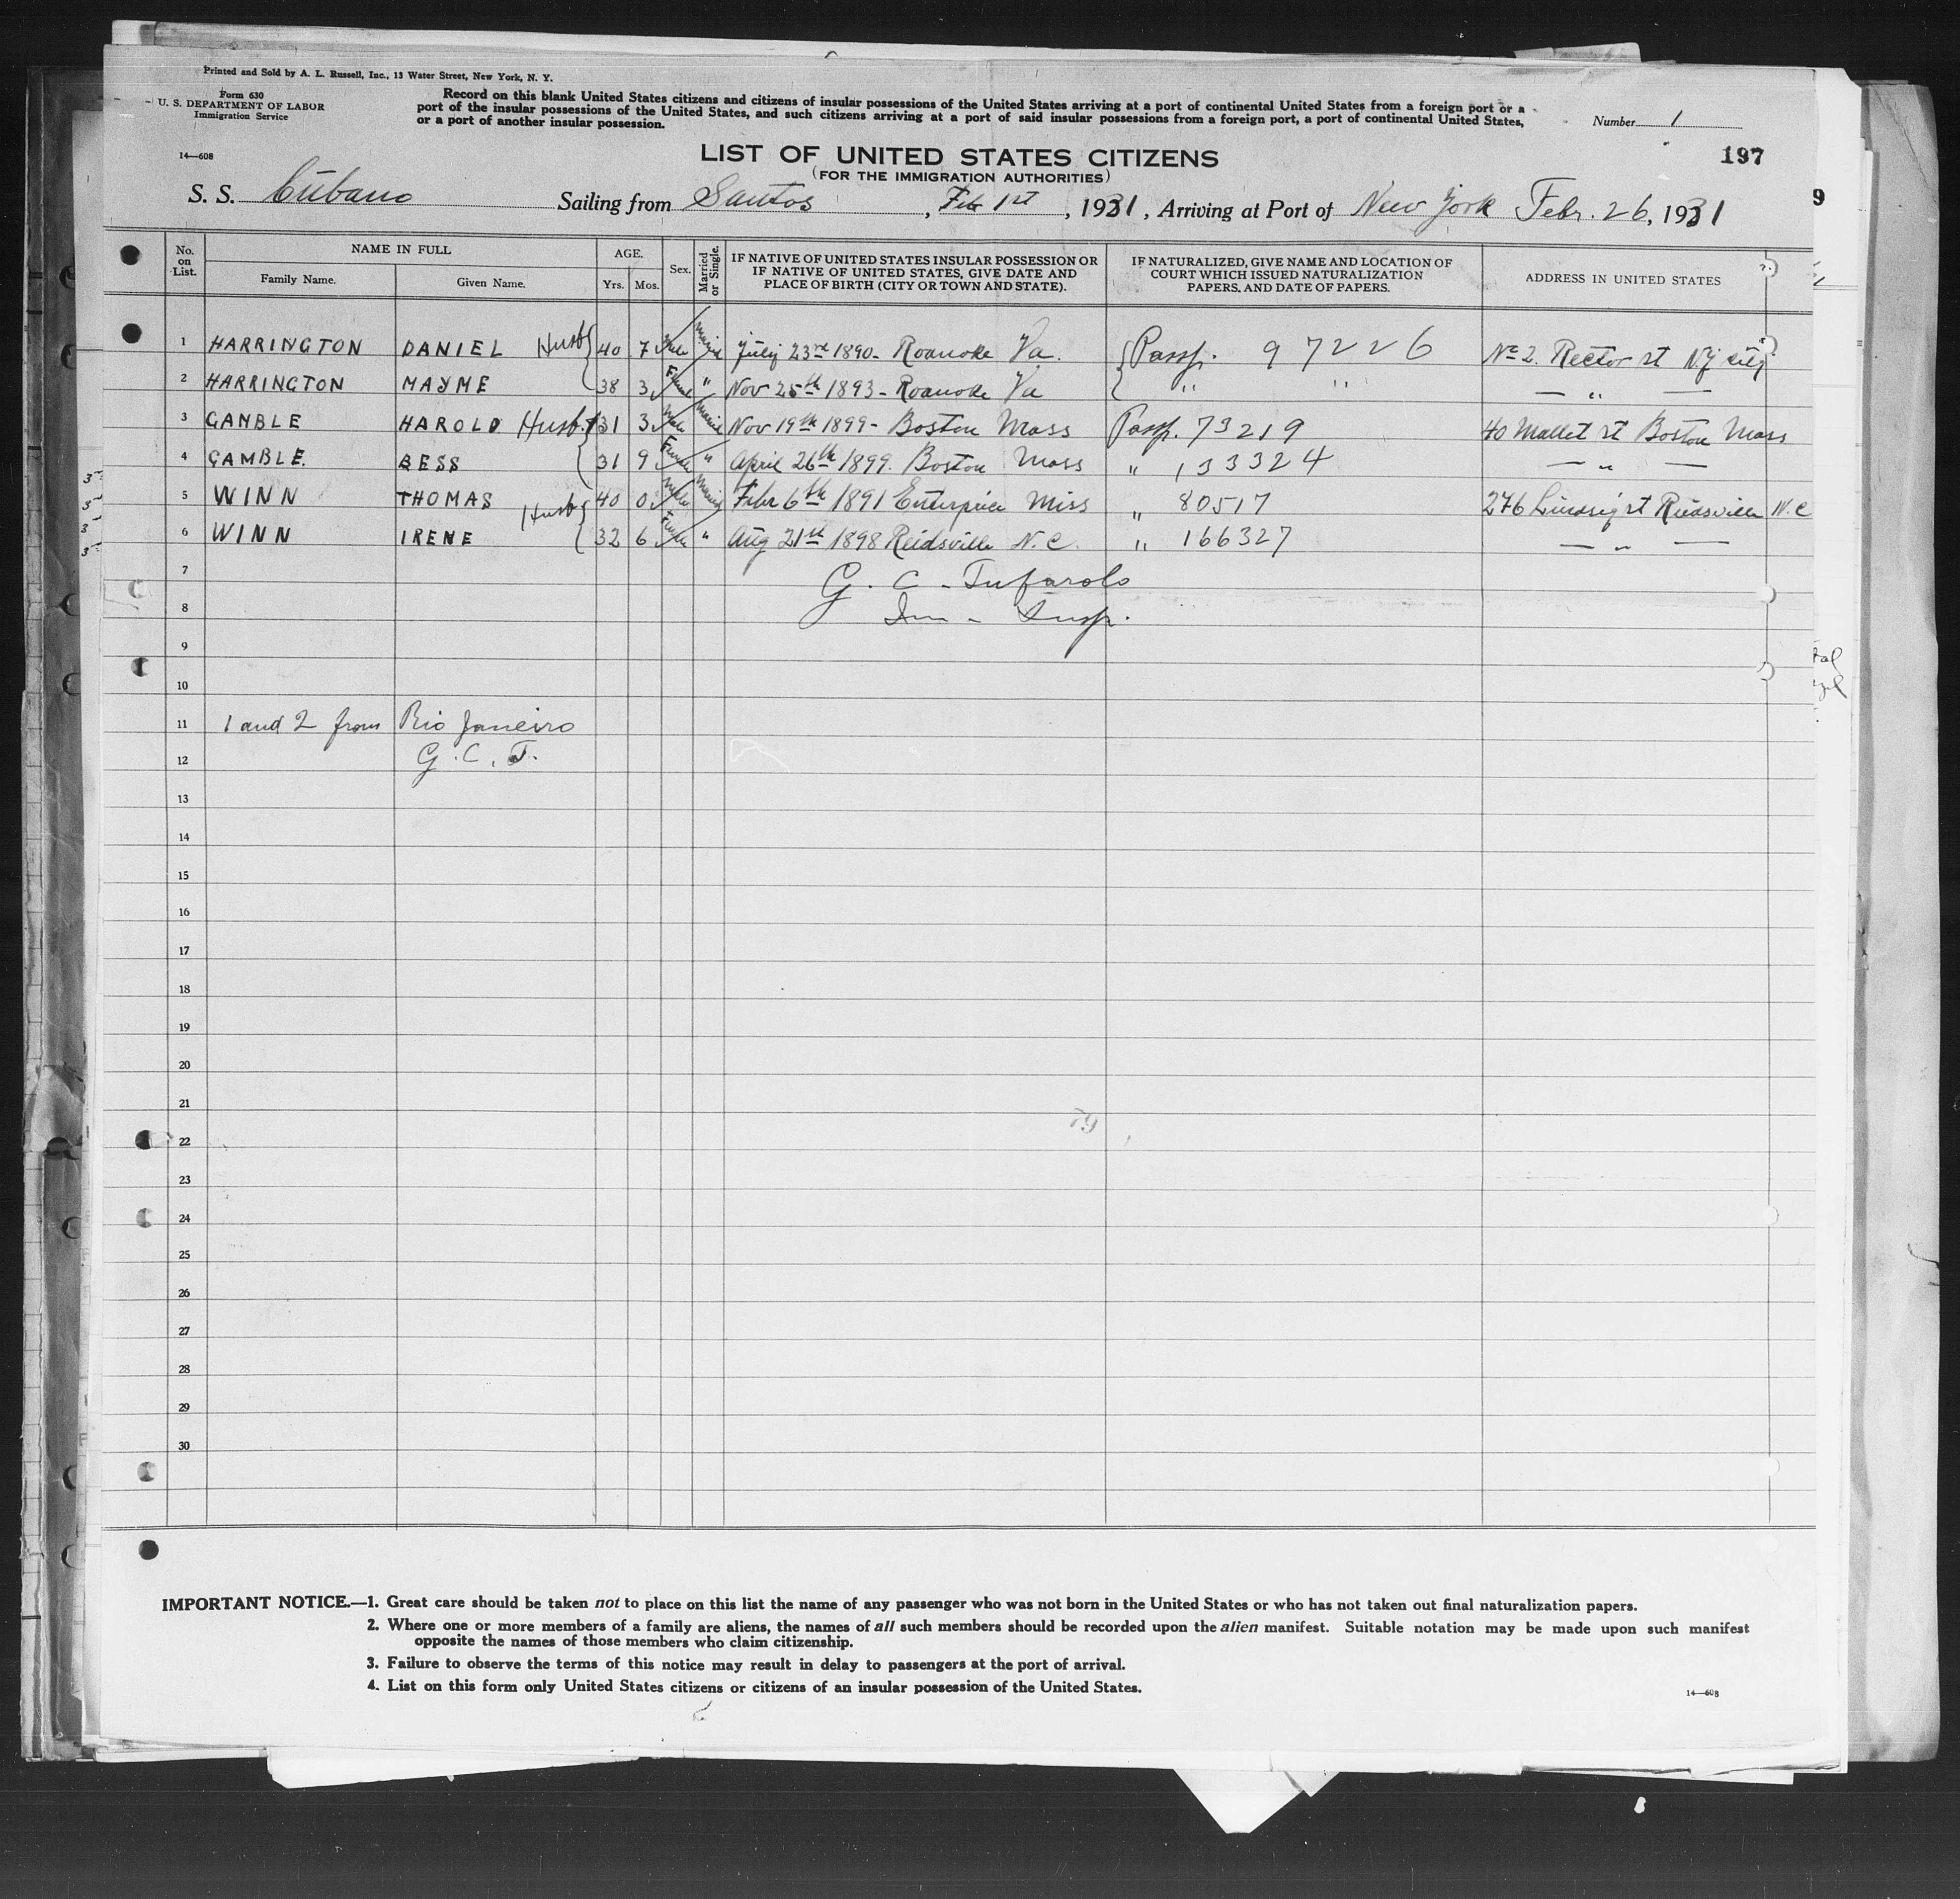 Printed and Sold by A. L. Russell, Inc., 13 Water Street, New York, N. Y.
Form 630
U. S. DEPARTMENT OF LABOR
Immigration Service
14—608
Record on this blank United States citizens and citizens of insular possessions of the United States arriving at a port of continental United States from a foreign port or a
port of the insular possessions of the United States, and such citizens arriving at a port of said insular possessions from a foreign port, a port of continental United States,
or a port of another insular possession.
Number 1
LIST OF UNITED STATES CITIZENS
197
(FOR THE IMMIGRATION AUTHORITIES)
S. S. Cubano Sailing from Santos, Feb 1st, 1931, Arriving at Port of New York Febr. 26, 1931
9
No. on List. NAME IN FULL Family Name. Given Name. AGE. Yrs. Mos. Sex. Married or Single. IF NATIVE OF UNITED STATES INSULAR POSSESSION OR IF NATIVE OF UNITED STATES, GIVE DATE AND PLACE OF BIRTH (CITY OR TOWN AND STATE). IF NATURALIZED, GIVE NAME AND LOCATION OF COURT WHICH ISSUED NATURALIZATION PAPERS, AND DATE OF PAPERS. ADDRESS IN UNITED STATES
1 HARRINGTON DANIEL Husb 40 7 Male Married July 23rd 1890 - Roanoke Va. Passp. 97226 No 2. Rector st N.Y city
2 HARRINGTON MAYME 38 3 Female " Nov 25th 1893 - Roanoke Va " " — " —
3 GAMBLE HAROLD Husb. 31 3 Male Married Nov 19th 1899 - Boston Mass Passp. 73219 40 Mallet st Boston Mass
4 GAMBLE. BESS 31 9 Female " April 26th 1899. Boston Mass " 133324 — " —
5 WINN THOMAS Husb 40 0 Male Married Febr 6th 1891 Enterprice Miss " 80517 276 Lindsey st Reidsville N.C
6 WINN IRENE 32 6 Female " Aug 21st 1898 Reidsville N.C. " 166327 — " —
7 G. C. Tufarolo
8 Im - Insp.
9
10
11 1 and 2 from Rio Janeiro
12 G. C. T.
13
14
15
16
17
18
19
20
21
22
23
24
25
26
27
28
29
30
IMPORTANT NOTICE.—1. Great care should be taken not to place on this list the name of any passenger who was not born in the United States or who has not taken out final naturalization papers.
2. Where one or more members of a family are aliens, the names of all such members should be recorded upon the alien manifest. Suitable notation may be made upon such manifest
opposite the names of those members who claim citizenship.
3. Failure to observe the terms of this notice may result in delay to passengers at the port of arrival.
4. List on this form only United States citizens or citizens of an insular possession of the United States.
14—608